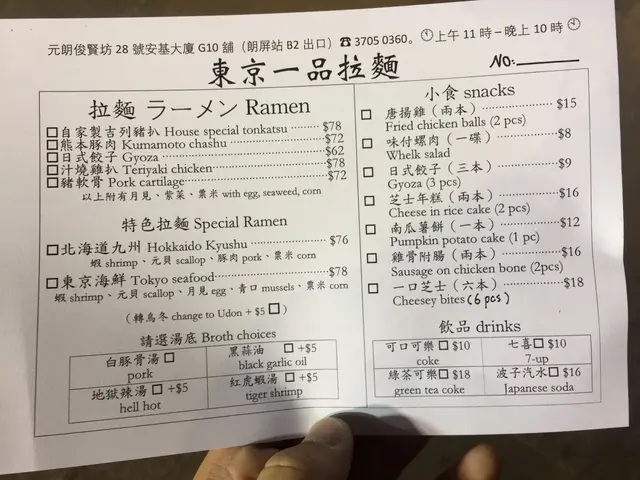 元朗俊賢坊 28 號安基大廈 G10 舖（朗屏站 B2 出口）☎ 3705 0360。 🕚上午 11 時 – 晚上 10 時 🕙
東京一品拉麵
NO:
拉麵 ラーメン Ramen
☐自家製吉列豬扒 House special tonkatsu ········ $78
☐熊本豚肉 Kumamoto chashu ········ $72
☐日式餃子 Gyoza ········ $62
☐汁燒雞扒 Teriyaki chicken ········ $78
☐豬軟骨 Pork cartilage ········ $72
以上附有月見、紫菜、粟米 with egg, seaweed, corn
特色拉麵 Special Ramen
☐北海道九州 Hokkaido Kyushu ········ $76
蝦 shrimp、元貝 scallop、豚肉 pork、粟米 corn
☐東京海鮮 Tokyo seafood ········ $78
蝦 shrimp、元貝 scallop、月見 egg、青口 mussels、粟米 corn
（轉烏冬 change to Udon + $5 ☐）
請選湯底 Broth choices
白豚骨湯 ☐
pork
黑蒜油 ☐ +$5
black garlic oil
地獄辣湯 ☐ +$5
hell hot
紅虎蝦湯 ☐ +$5
tiger shrimp
小食 snacks
☐ 唐揚雞（兩本）········ $15
Fried chicken balls (2 pcs)
☐ 味付螺肉（一碟）········ $8
Whelk salad
☐ 日式餃子（三本）········ $9
Gyoza (3 pcs)
☐ 芝士年糕（兩本）········ $16
Cheese in rice cake (2 pcs)
☐ 南瓜薯餅（一本）········ $12
Pumpkin potato cake (1 pc)
☐ 雞骨附腸（兩本）········ $16
Sausage on chicken bone (2pcs)
☐ 一口芝士（六本）········ $18
Cheesey bites (6 pcs)
飲品 drinks
可口可樂 ☐ $10
coke
七喜 ☐ $10
7-up
綠茶可樂 ☐ $18
green tea coke
波子汽水 ☐ $16
Japanese soda